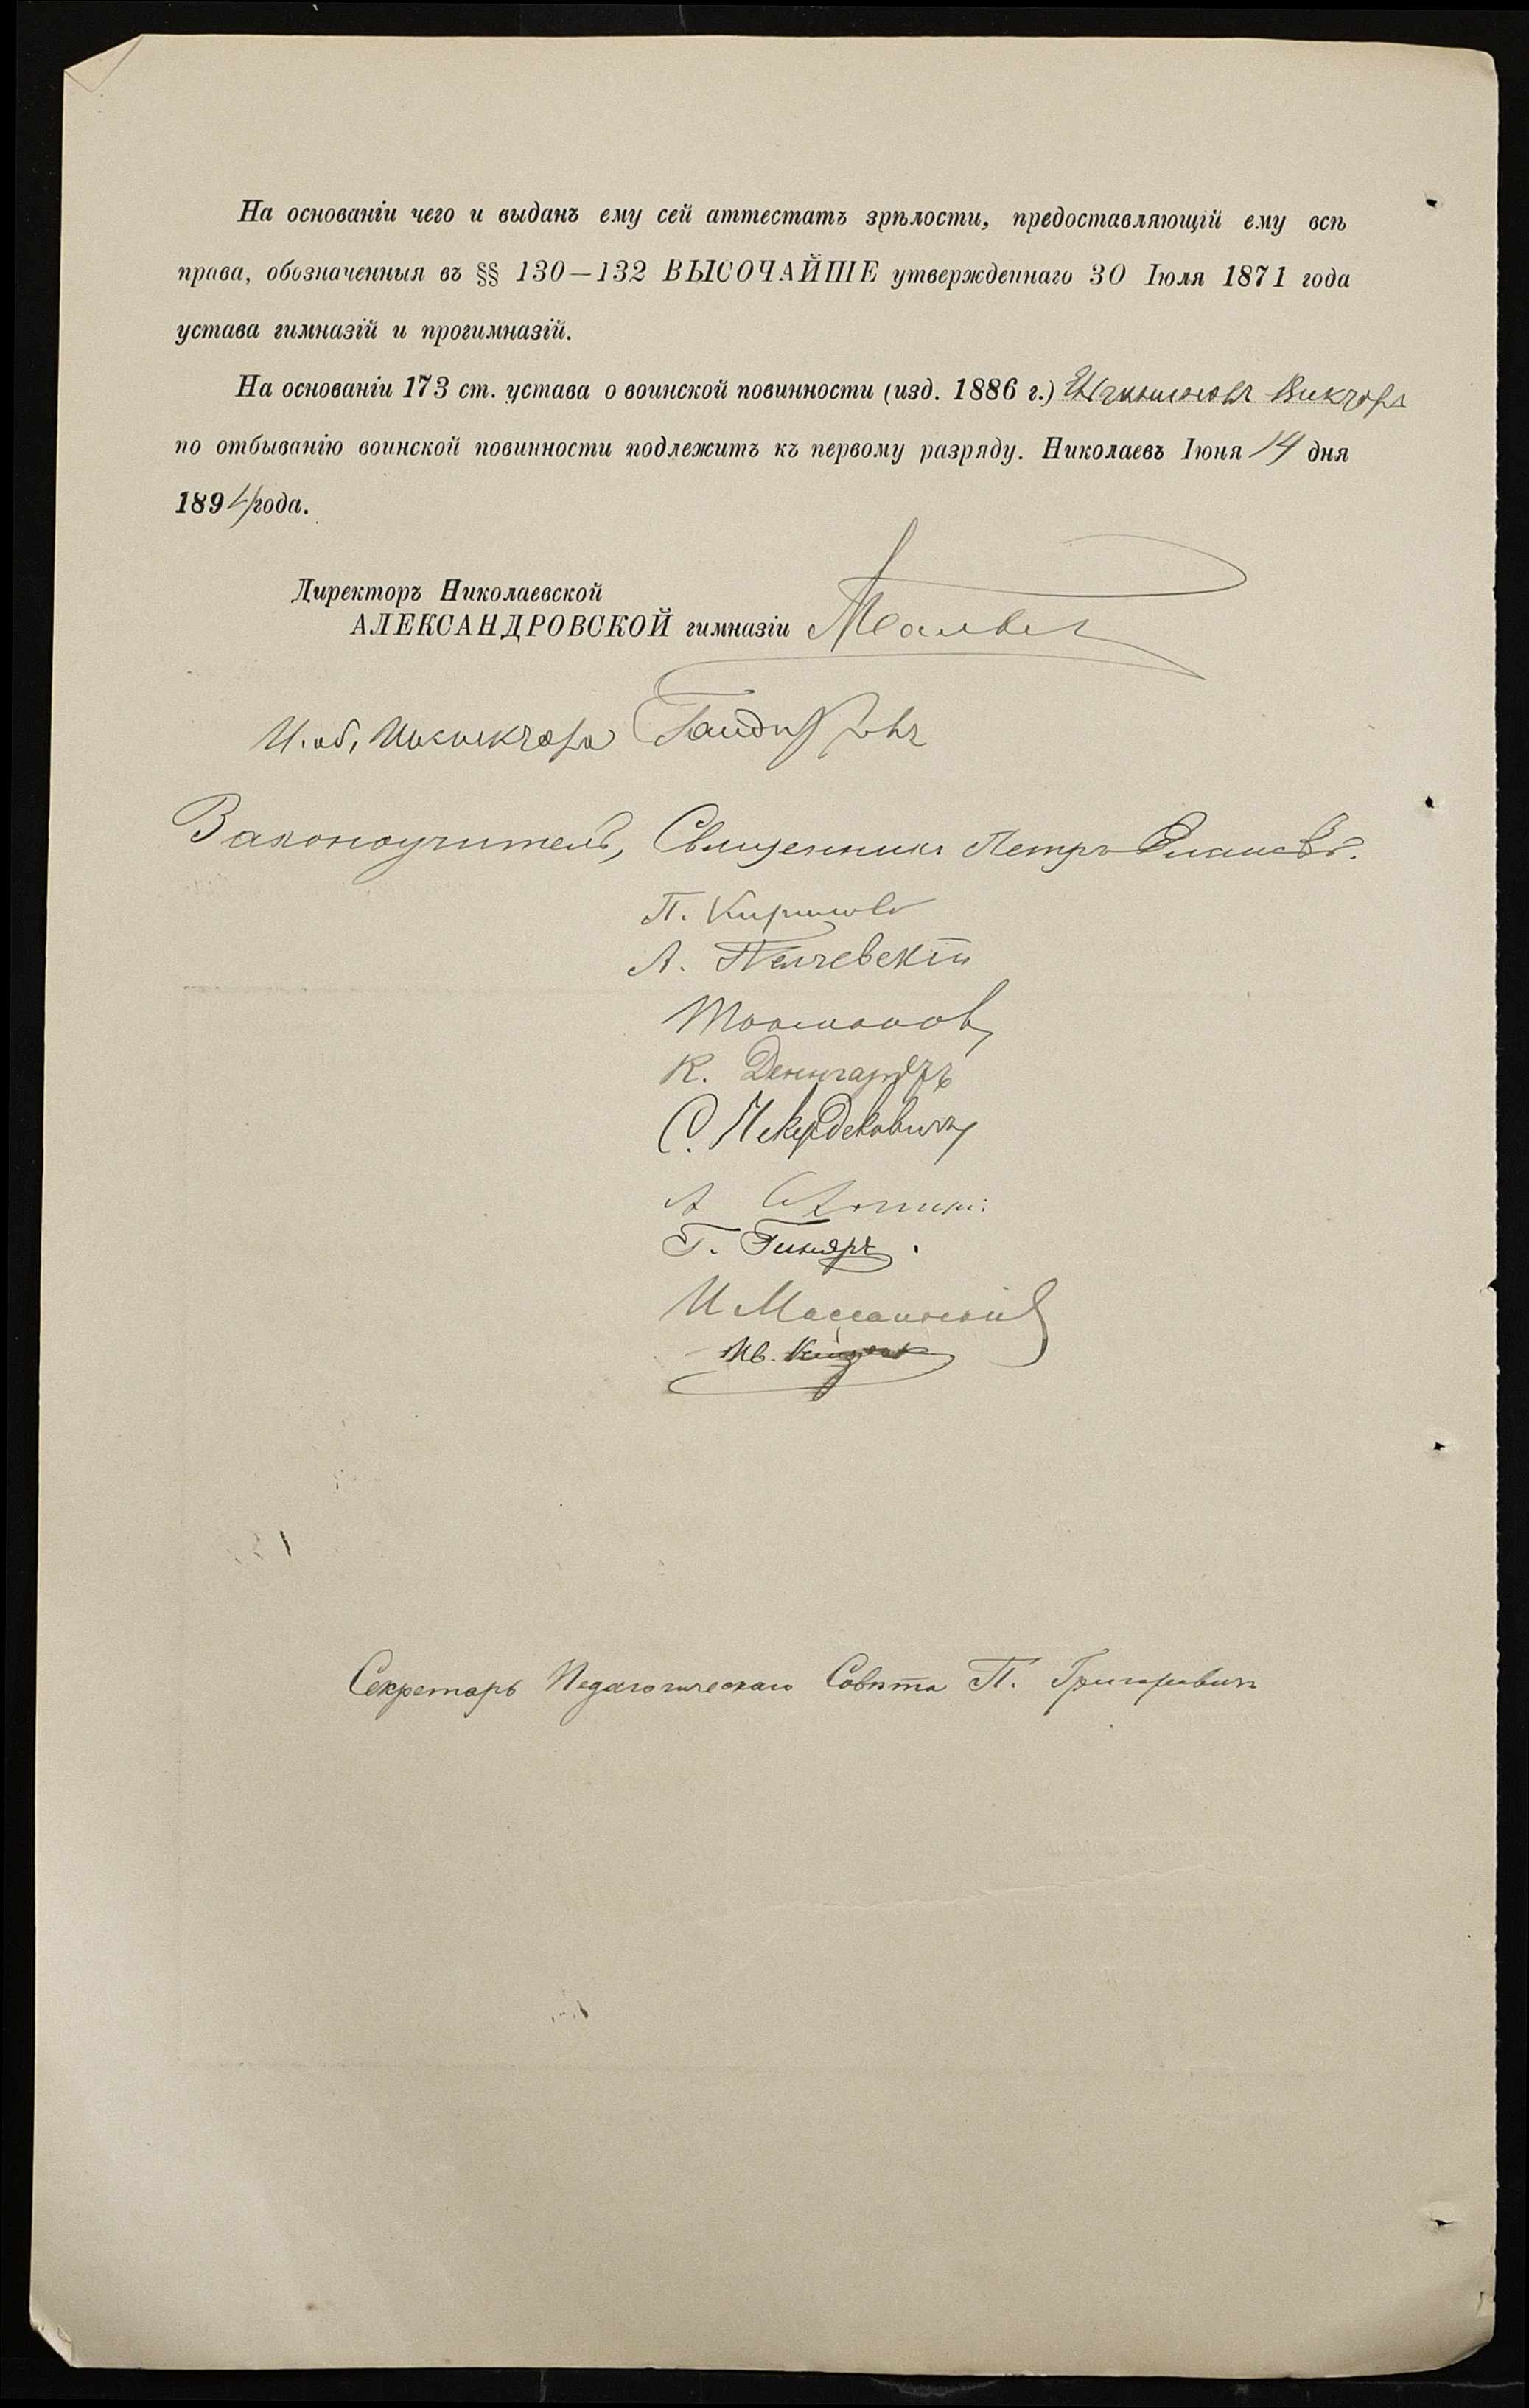 На основаніи чего и выданъ ему сей аттестатъ зрѣлости, предоставляющій ему всѣ
права, обозначенныя въ §§ 130—132 ВЫСОЧАЙШЕ утвержденнаго 30 Іюля 1871 года
устава гимназій и прогимназій.
На основаніи 173 ст. устава о воинской повинности (изд. 1886 г.) Викторъ
по отбыванію воинской повинности подлежитъ къ первому разряду. Николаевъ Іюня 14 дня
1894 года.
Директоръ Николаевской
АЛЕКСАНДРОВСКОЙ гимназіи
И. об. Инспектора
Законоучитель, Священникъ Петръ
П. Кирилловъ
А.
К.
С.
А
Г. Гиняръ.
И
Ив.
Секретарь Педагогическаго Совѣта П. Григоровичъ